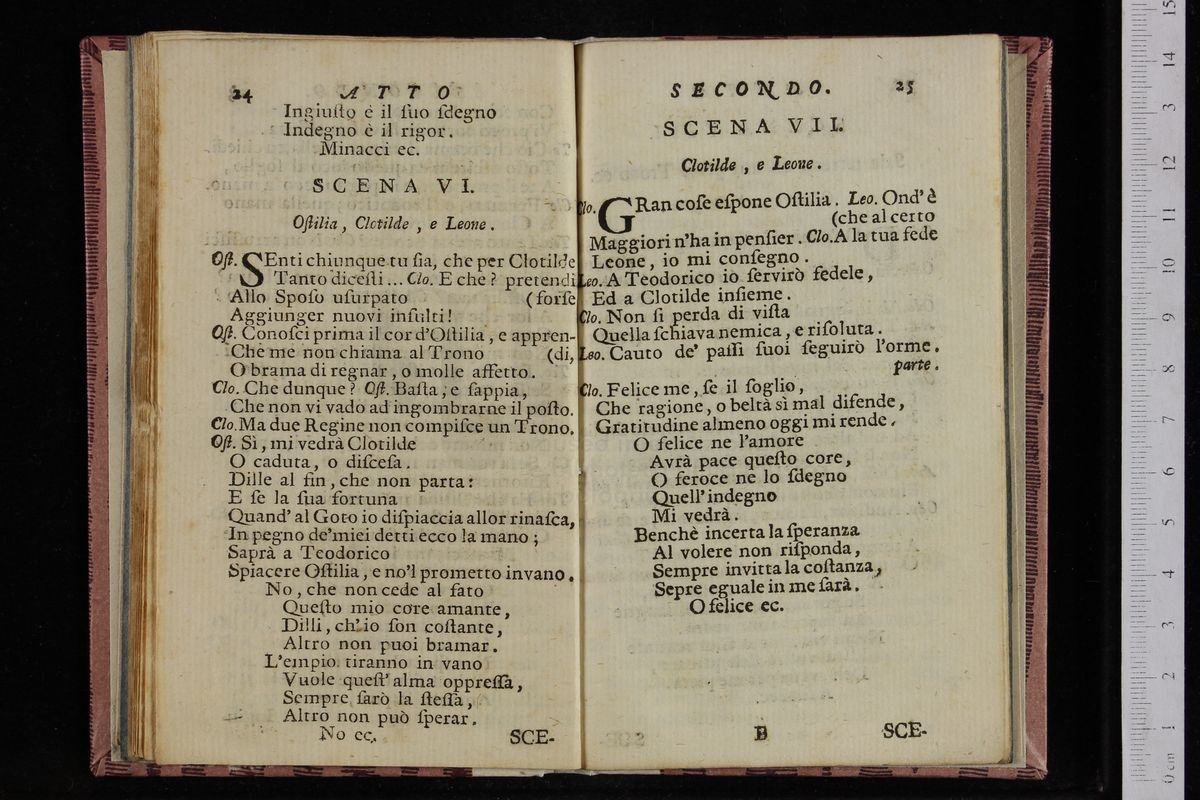 24 ATTO
Ingiuſto è il ſuo ſdegno
Indegno è il rigor.
Minacci ec.
SCENA VI.
Oſtilia, Clotilde, e Leone.
Oſt. SEnti chiunque tu ſia, che per Clotilde
Tanto diceſti... Clo. E che? pretendi
Allo Spoſo uſurpato (forſe
Aggiunger nuovi inſulti!
Oſt. Conoſci prima il cor d'Oſtilia, e appren-
Che me non chiama al Trono (di,
O brama di regnar, o molle affetto.
Clo. Che dunque? Oſt. Baſta, e ſappia,
Che non vi vado ad ingombrarne il poſto.
Clo. Ma due Regine non compiſce un Trono.
Oſt. Sì, mi vedrà Clotilde
O caduta, o diſceſa.
Dille al fin, che non parta:
E ſe la ſua fortuna
Quand' al Goto io diſpiaccia allor rinaſca,
In pegno de'miei detti ecco la mano;
Saprà a Teodorico
Spiacere Oſtilia, e no'l prometto invano.
No, che non cede al fato
Queſto mio core amante,
Dilli, ch'io ſon coſtante,
Altro non puoi bramar.
L'empio tiranno in vano
Vuole queſt' alma oppreſſa,
Sempre ſarò la ſteſſa,
Altro non può ſperar.
No ec.
SCE-
SECONDO. 25
SCENA VII.
Clotilde, e Leone.
Clo. GRan coſe eſpone Oſtilia. Leo. Ond' è
(che al certo
Maggiori n'ha in penſier. Clo. A la tua fede
Leone, io mi conſegno.
Leo. A Teodorico io ſervirò fedele,
Ed a Clotilde inſieme.
Clo. Non ſi perda di viſta
Quella ſchiava nemica, e riſoluta.
Leo. Cauto de' paſſi ſuoi ſeguirò l'orme.
parte.
Clo. Felice me, ſe il ſoglio,
Che ragione, o beltà sì mal difende,
Gratitudine almeno oggi mi rende.
O felice ne l'amore
Avrà pace queſto core,
O feroce ne lo ſdegno
Quell' indegno
Mi vedrà.
Benchè incerta la ſperanza
Al volere non riſponda,
Sempre invitta la coſtanza,
Sepre eguale in me ſarà.
O felice ec.
B SCE-
15
14
13
12
11
10
9
8
7
6
5
4
3
2
1
0 cm